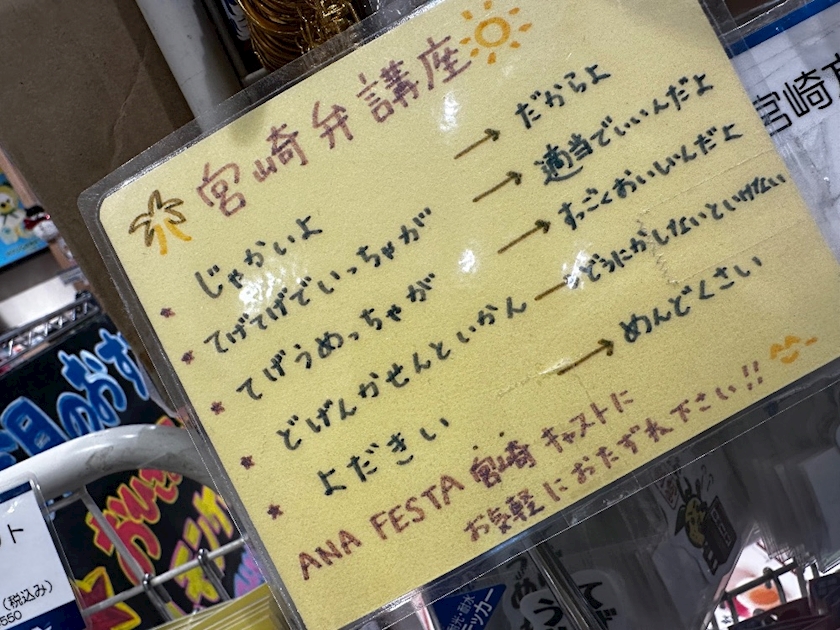 宮崎弁講座
★ じゃかいよ → だからよ
★ てげてげでいっちゃが → 適当でいいんだよ
★ てげうめっちゃが → すっごくおいしいんだよ
★ どげんかせんといかん → どうにかしないといけない
★ よだきい → めんどくさい
ANA FESTA 宮崎 キャストに
お気軽におたずね下さい!!
宮崎
月のおす
(税込み)
550